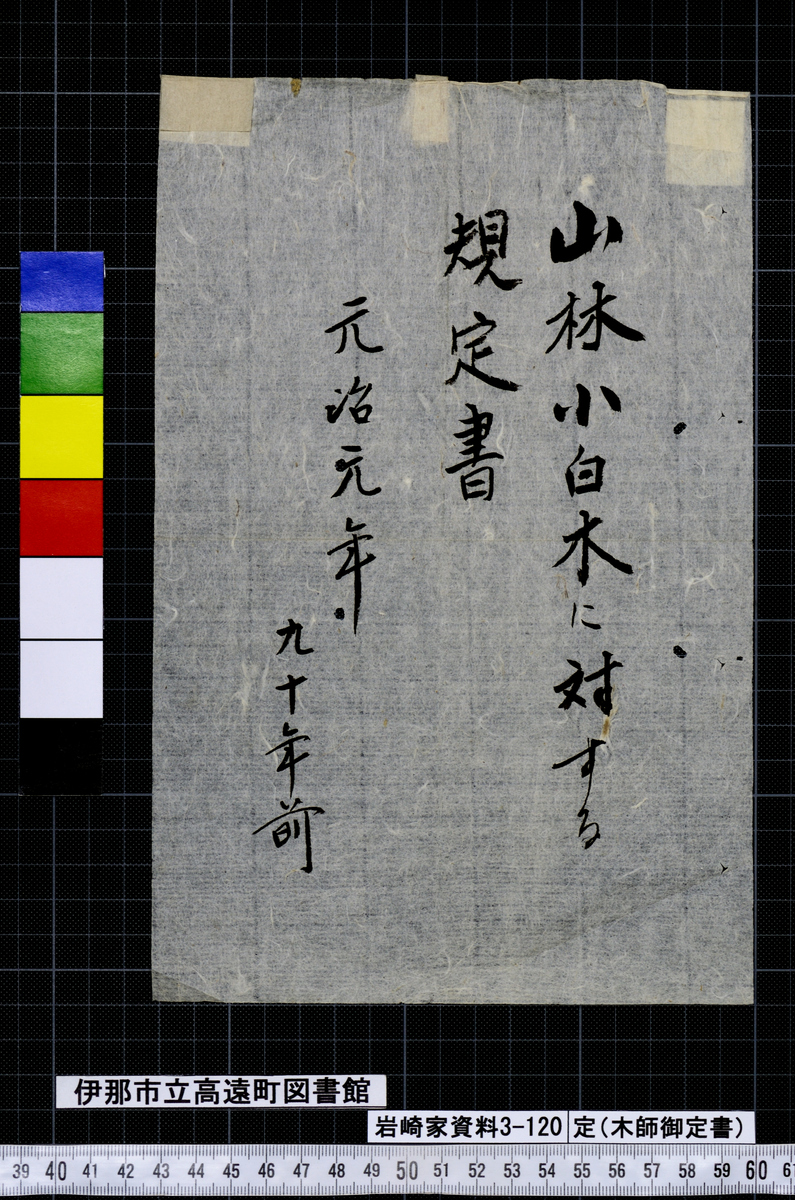 山林小白木に対する
規定書
元治元年
九十年前
伊那市立高遠町図書館
岩崎家資料3-120 定(木師御定書)
39 40 41 42 43 44 45 46 47 48 49 50 51 52 53 54 55 56 57 58 59 60 61